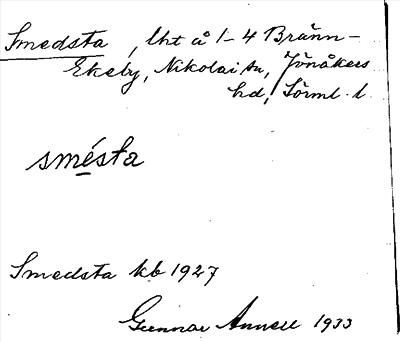 Smedsta, lht å 1-4 Bränn-
Ekeby, Nikolai sn, Jönåkers
hd, Sörml. l.
smésta
Smedsta kb 1927
Gunnar Annell 1933